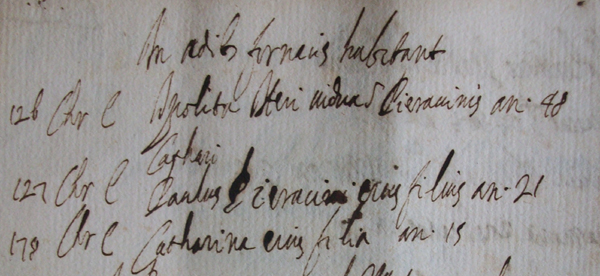 In ædibs fornacis habitant
126 Chr C Ipolita Neri vidua Pieraccinis an. 48
Cathari
127 Chr C Paulus Pieraccini eius filius an. 21
178 Chr C Catharina eius filia an. 15